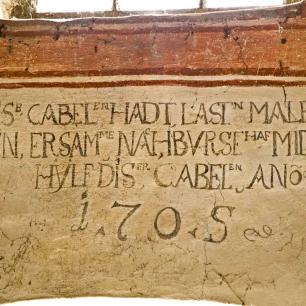 Sᴱ CABELᴱᴺ HADT, LASTᴺ MALE
N, ERSAMᴹᴱ NACHBVRSCHAF MID
HVLF DISᴱᴿ CABELᴱᴺ, ANO
1.7.0.5